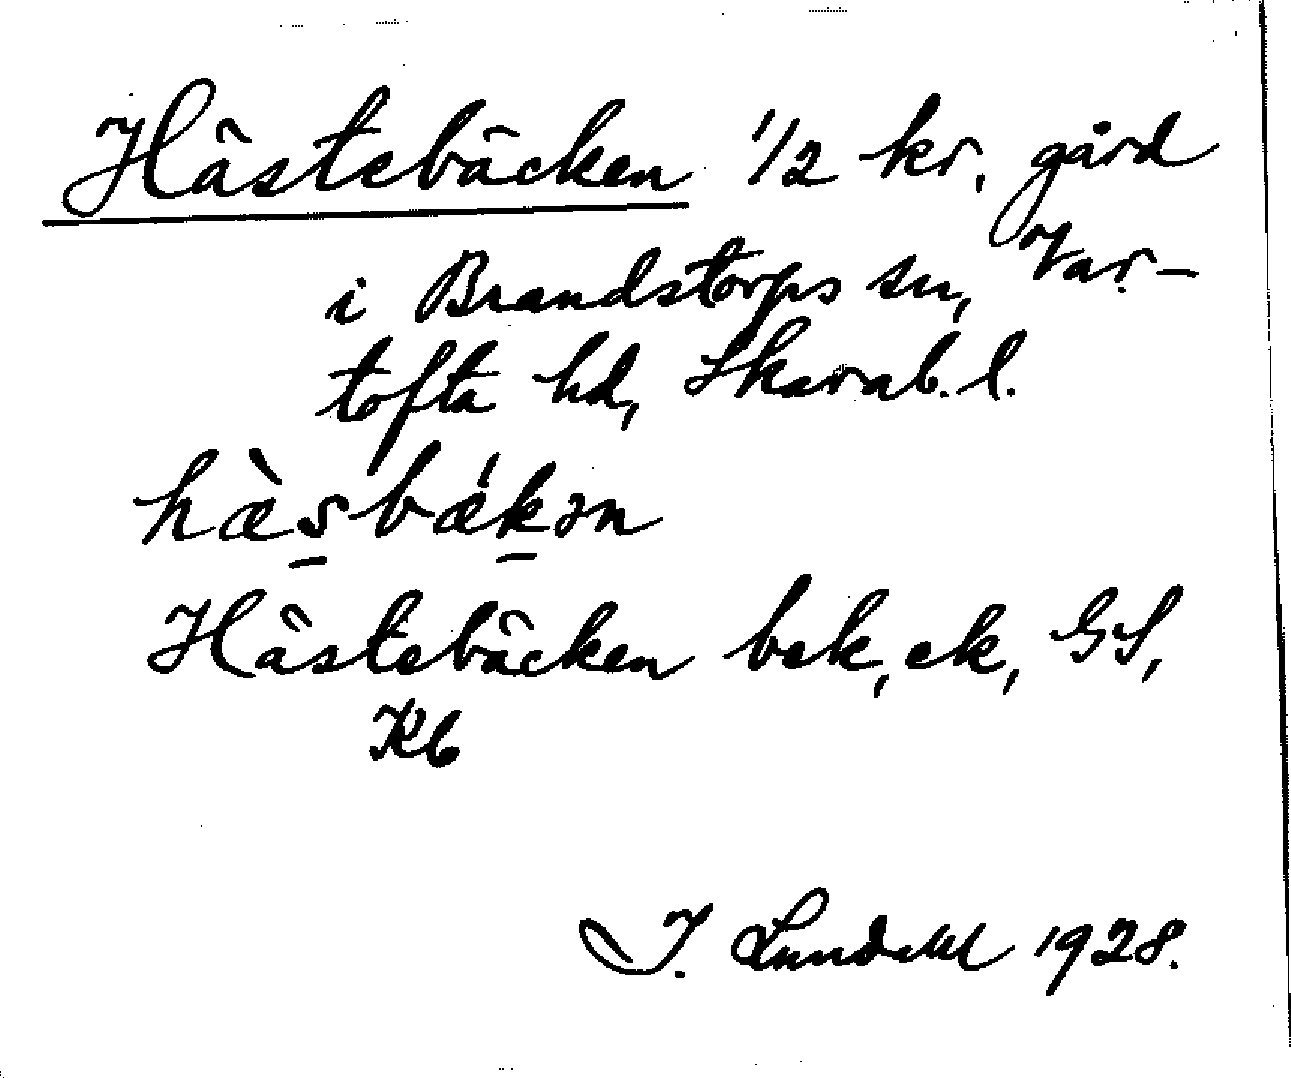 Hästebäcken 1/2 kr. gård
i Brandstorps sn, Var-
tofta hd, Skarab. l.
hæ̀s̲bǽk̲ən
Hästebäcken bek, ek, GS,
Kb
I. Lundahl 1928.